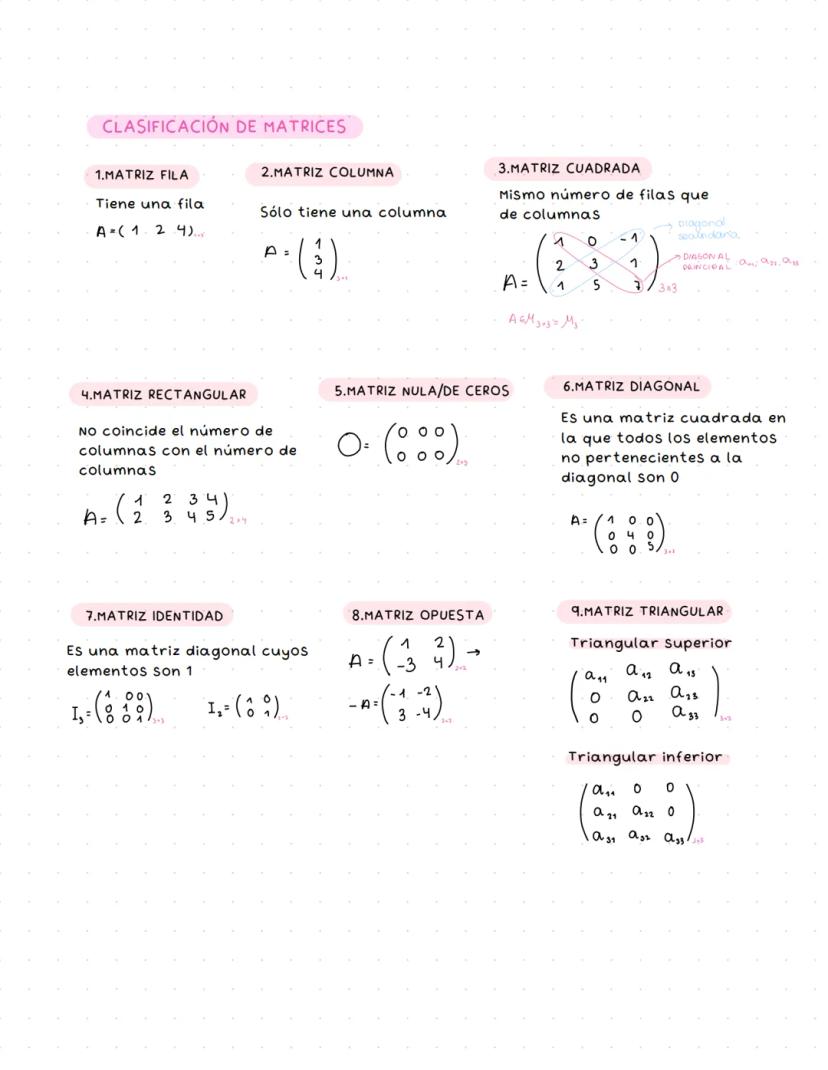 CLASIFICACIÓN DE MATRICES
1.MATRIZ FILA
Tiene una fila
A=( 1 2 4)
2.MATRIZ COLUMNA
Sólo tiene una columna
A = ( 1
3
4 ) 3×1
3.MATRIZ CUADRADA
Mismo número de filas que
de columnas
A= ( 1 0 -1
2 3 1
1 5 7 ) 3×3
Diagonal
secundaria
DIAGONAL
PRINCIPAL a₁₁, a₂₂, a₃₃
A∈M₃ₓ₃ = M₃
4.MATRIZ RECTANGULAR
No coincide el número de
columnas con el número de
columnas
A= ( 1 2 3 4
2 3 4 5 ) 2×4
5.MATRIZ NULA/DE CEROS
O= ( 0 0 0
0 0 0 ) 2×3
6.MATRIZ DIAGONAL
Es una matriz cuadrada en
la que todos los elementos
no pertenecientes a la
diagonal son 0
A= ( 1 0 0
0 4 0
0 0 5 ) 3×3
7.MATRIZ IDENTIDAD
Es una matriz diagonal cuyos
elementos son 1
I₃= ( 1 0 0
0 1 0
0 0 1 ) 3×3
I₂= ( 1 0
0 1 ) 2×2
8.MATRIZ OPUESTA
A= ( 1 2
-3 4 ) 2×2 →
-A= ( -1 -2
3 -4 ) 2×2
9.MATRIZ TRIANGULAR
Triangular superior
( a₁₁ a₁₂ a₁₃
0 a₂₂ a₂₃
0 0 a₃₃ ) 3×3
Triangular inferior
( a₁₁ 0 0
a₂₁ a₂₂ 0
a₃₁ a₃₂ a₃₃ ) 3×3